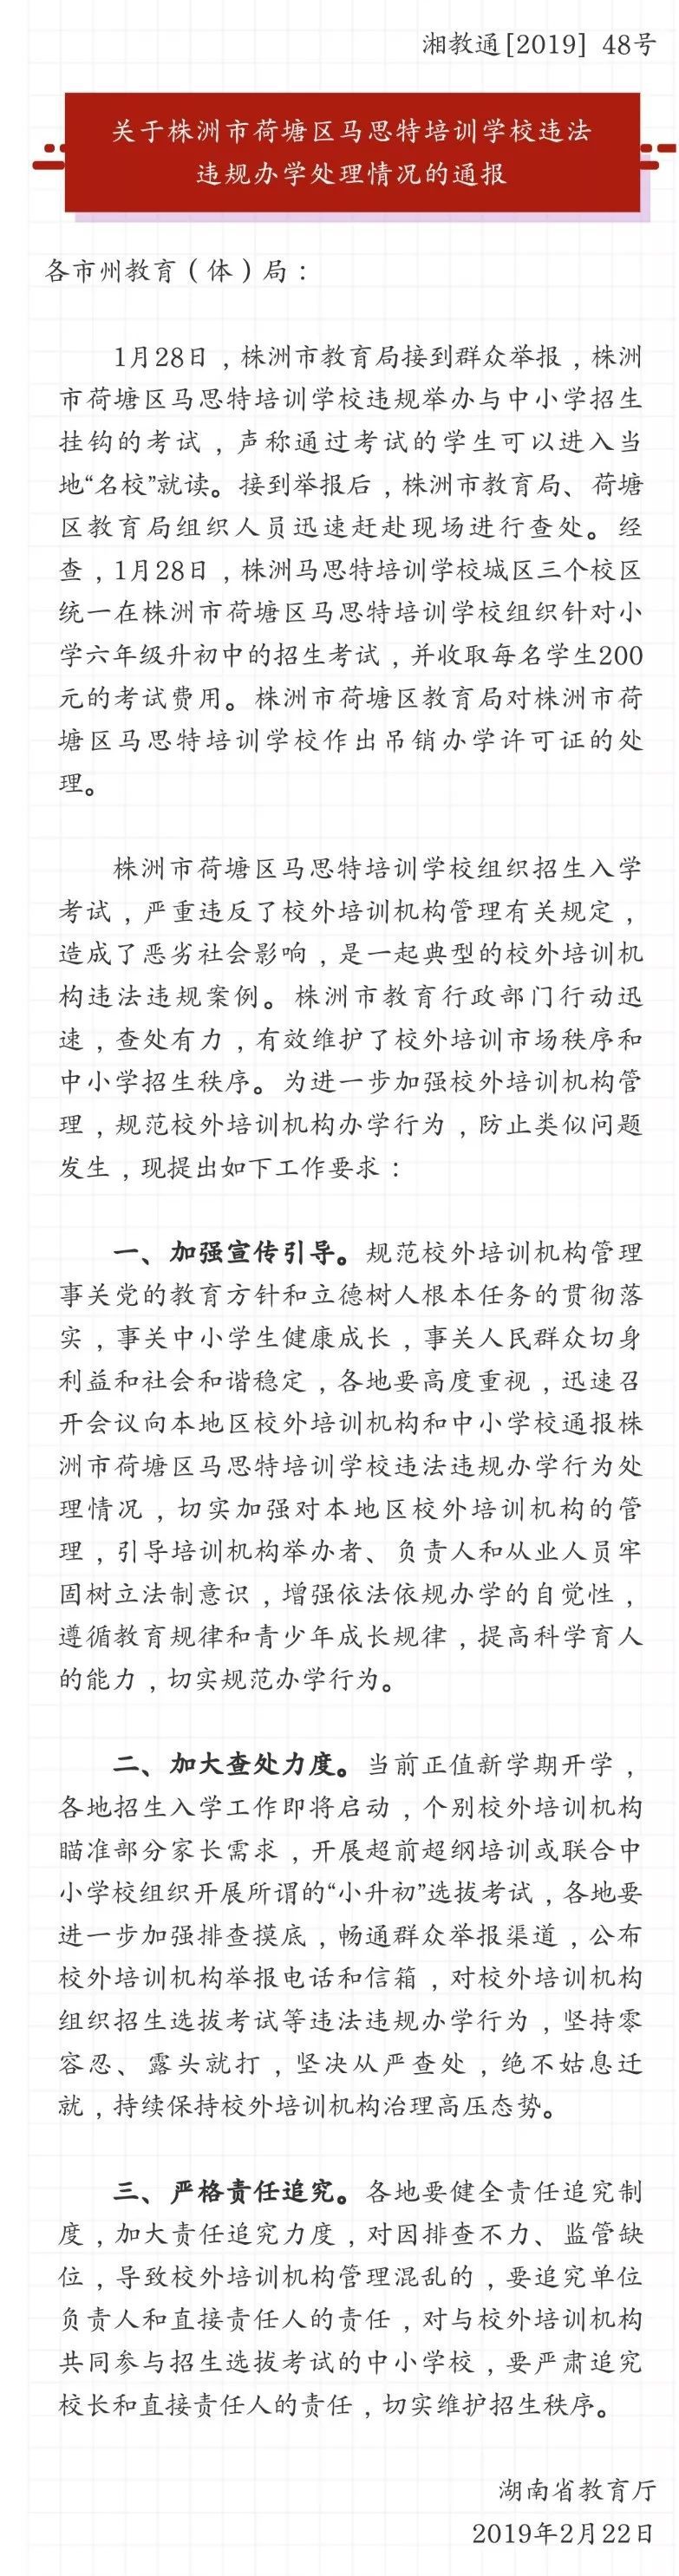 湘教通[2019] 48号
关于株洲市荷塘区马思特培训学校违法
违规办学处理情况的通报
各市州教育（体）局：
1月28日，株洲市教育局接到群众举报，株洲
市荷塘区马思特培训学校违规举办与中小学招生
挂钩的考试，声称通过考试的学生可以进入当
地“名校”就读。接到举报后，株洲市教育局、荷塘
区教育局组织人员迅速赶赴现场进行查处。经
查，1月28日，株洲马思特培训学校城区三个校区
统一在株洲市荷塘区马思特培训学校组织针对小
学六年级升初中的招生考试，并收取每名学生200
元的考试费用。株洲市荷塘区教育局对株洲市荷
塘区马思特培训学校作出吊销办学许可证的处
理。
株洲市荷塘区马思特培训学校组织招生入学
考试，严重违反了校外培训机构管理有关规定，
造成了恶劣社会影响，是一起典型的校外培训机
构违法违规案例。株洲市教育行政部门行动迅
速，查处有力，有效维护了校外培训市场秩序和
中小学招生秩序。为进一步加强校外培训机构管
理，规范校外培训机构办学行为，防止类似问题
发生，现提出如下工作要求：
一、加强宣传引导。规范校外培训机构管理
事关党的教育方针和立德树人根本任务的贯彻落
实，事关中小学生健康成长，事关人民群众切身
利益和社会和谐稳定，各地要高度重视，迅速召
开会议向本地区校外培训机构和中小学校通报株
洲市荷塘区马思特培训学校违法违规办学行为处
理情况，切实加强对本地区校外培训机构的管
理，引导培训机构举办者、负责人和从业人员牢
固树立法制意识，增强依法依规办学的自觉性，
遵循教育规律和青少年成长规律，提高科学育人
的能力，切实规范办学行为。
二、加大查处力度。当前正值新学期开学，
各地招生入学工作即将启动，个别校外培训机构
瞄准部分家长需求，开展超前超纲培训或联合中
小学校组织开展所谓的“小升初”选拔考试，各地要
进一步加强排查摸底，畅通群众举报渠道，公布
校外培训机构举报电话和信箱，对校外培训机构
组织招生选拔考试等违法违规办学行为，坚持零
容忍、露头就打，坚决从严查处，绝不姑息迁
就，持续保持校外培训机构治理高压态势。
三、严格责任追究。各地要健全责任追究制
度，加大责任追究力度，对因排查不力、监管缺
位，导致校外培训机构管理混乱的，要追究单位
负责人和直接责任人的责任，对与校外培训机构
共同参与招生选拔考试的中小学校，要严肃追究
校长和直接责任人的责任，切实维护招生秩序。
湖南省教育厅
2019年2月22日